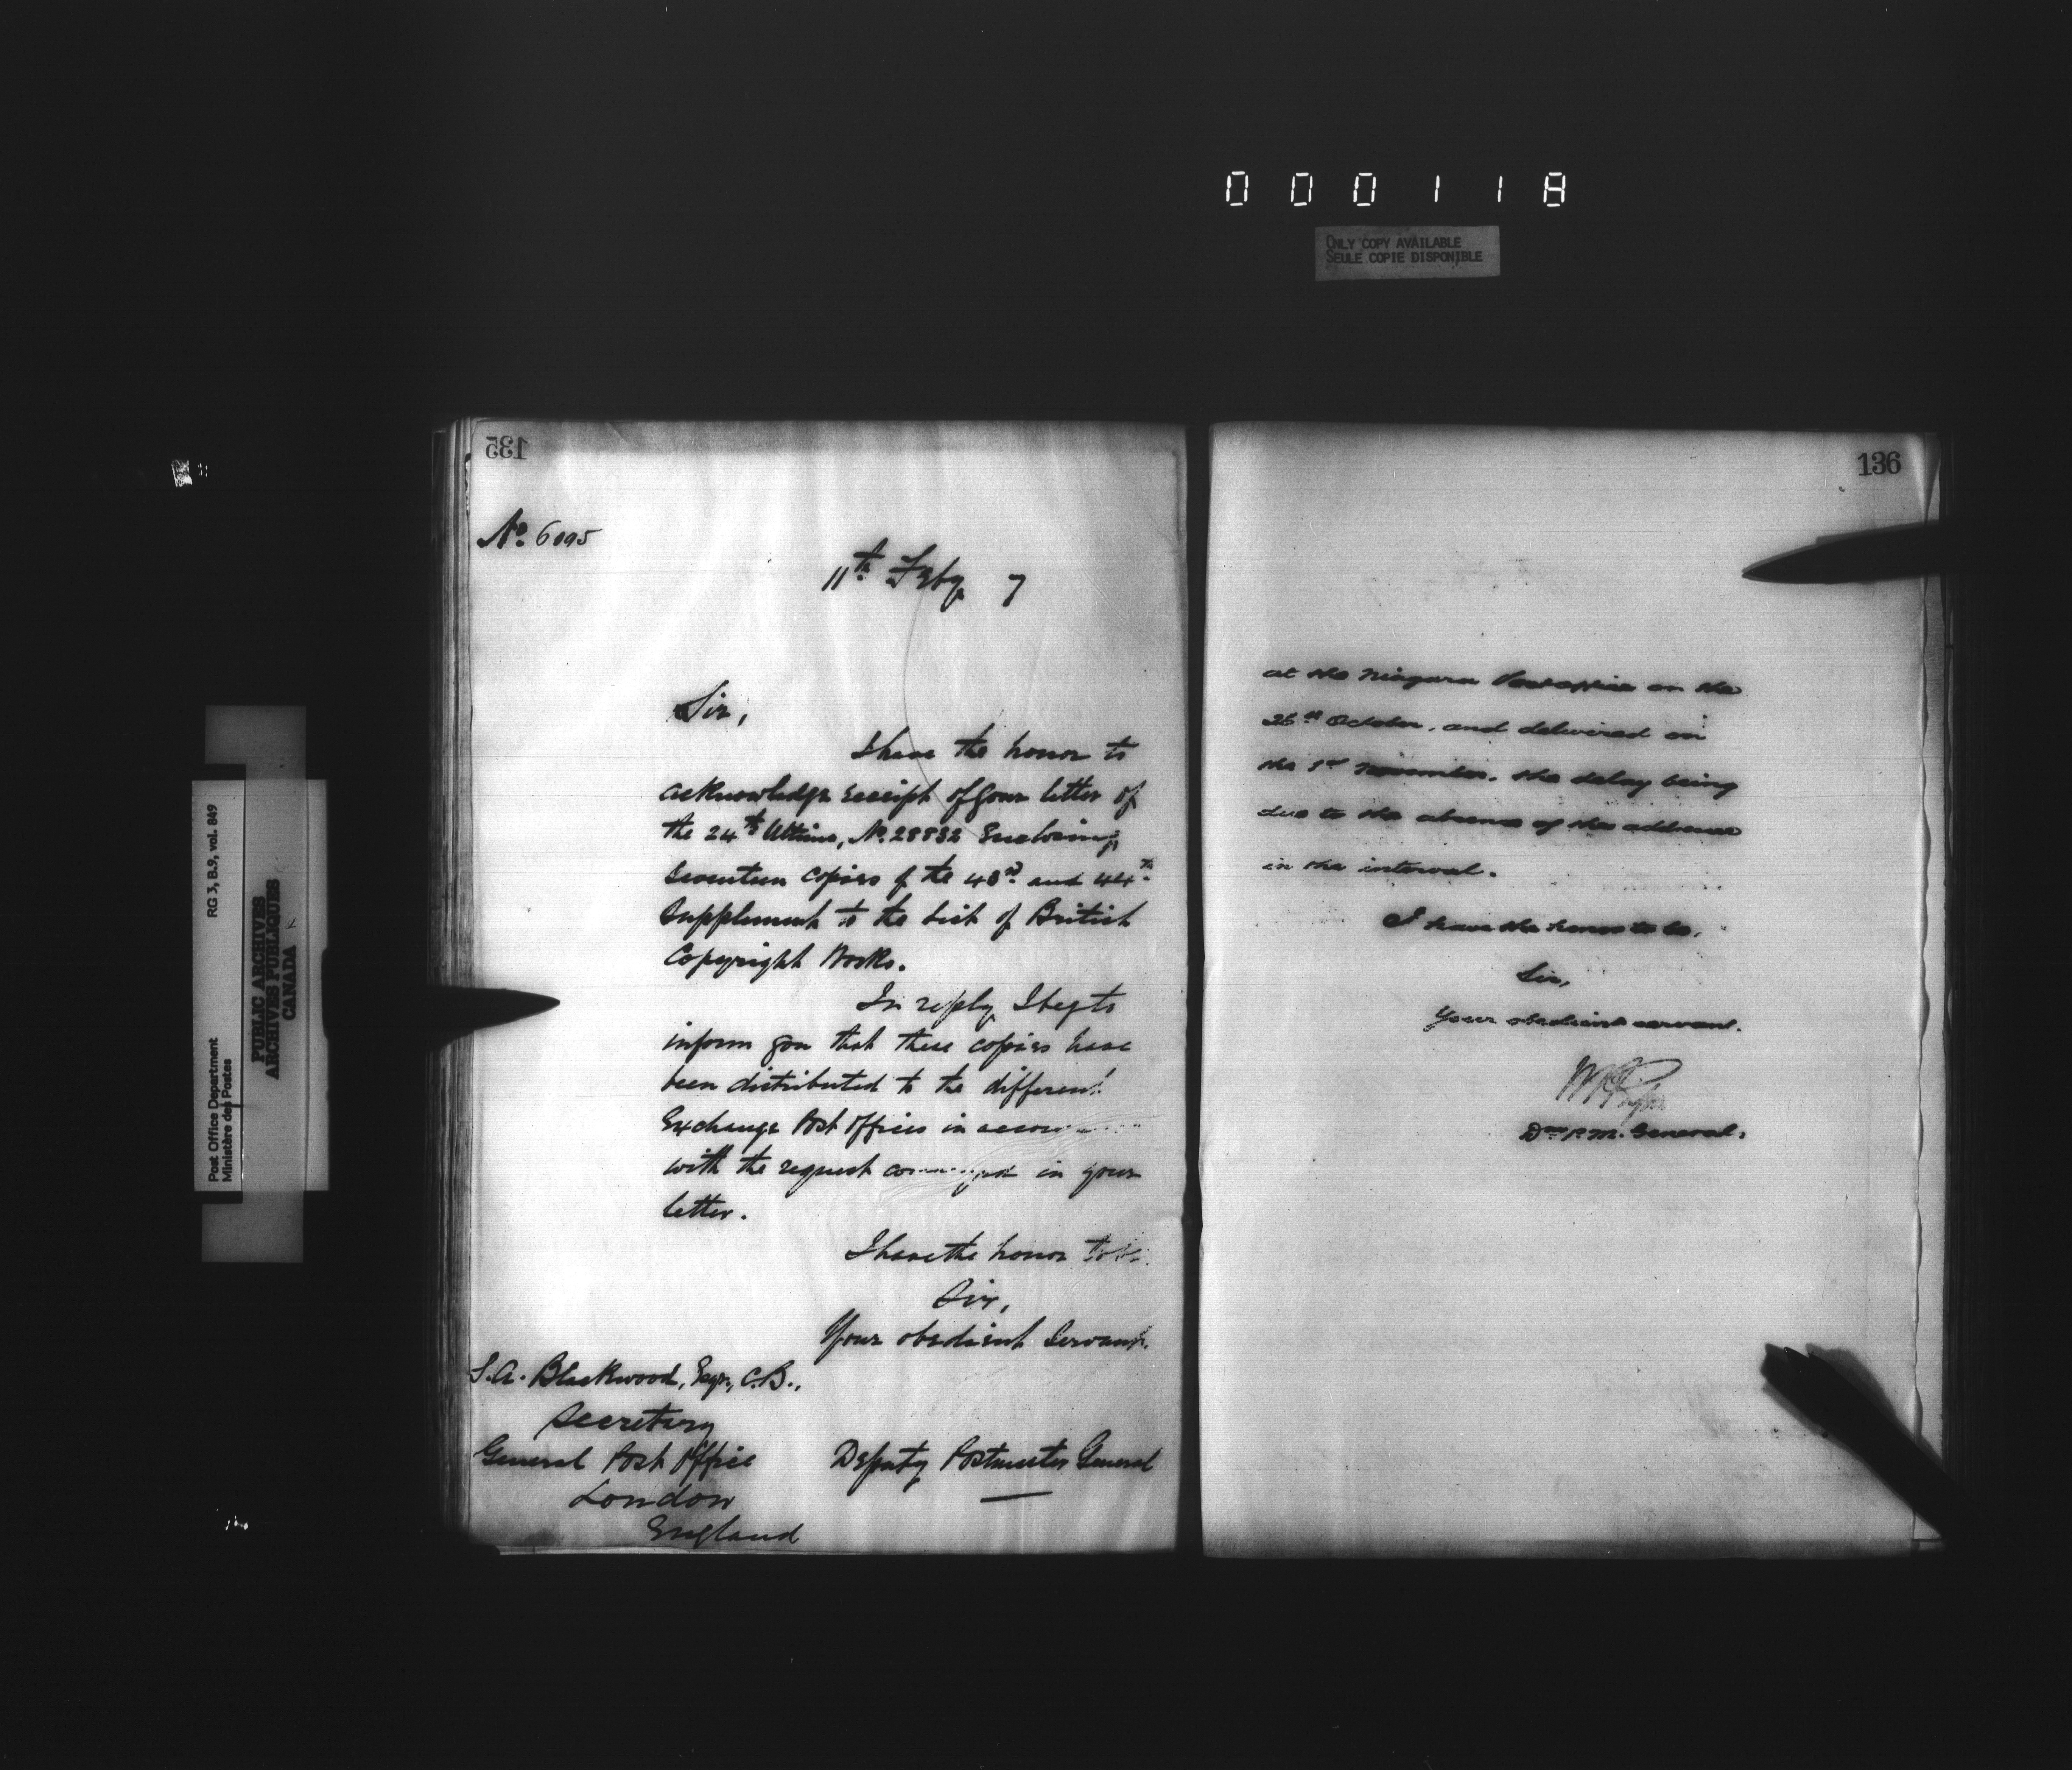 000118
ONLY COPY AVAILABLE
SEULE COPIE DISPONIBLE
RG 3, B.9, vol. 849
Post Office Department
Ministère des Postes
PUBLIC ARCHIVES
ARCHIVES PUBLIQUES
CANADA
135
No. 6095
11th Feby 7
Sir,
I have the honor to
acknowledge receipt of your letter of
the 24th Ultimo, No. 28832 Enclosing
Seventeen copies of the 43rd and 44th
Supplement to the List of British
Copyright Works.
In reply, I beg to
inform you that these copies have
been distributed to the different
Exchange Post Offices in
with the request in your
letter.
I have the honor to be
Sir,
Your obedient Servant.
S.A. Blackwood, Esqr., C.B.,
Secretary
General Post Office
London
England
Deputy Postmaster General
136
at the Niagara Post office on the
26th October, and delivered on
the 1st November, the delay being
due to the absence of the addressee
in the interval.
I have the honor to be,
Sir,
Your obedient servant.
Dep. P.M. General.